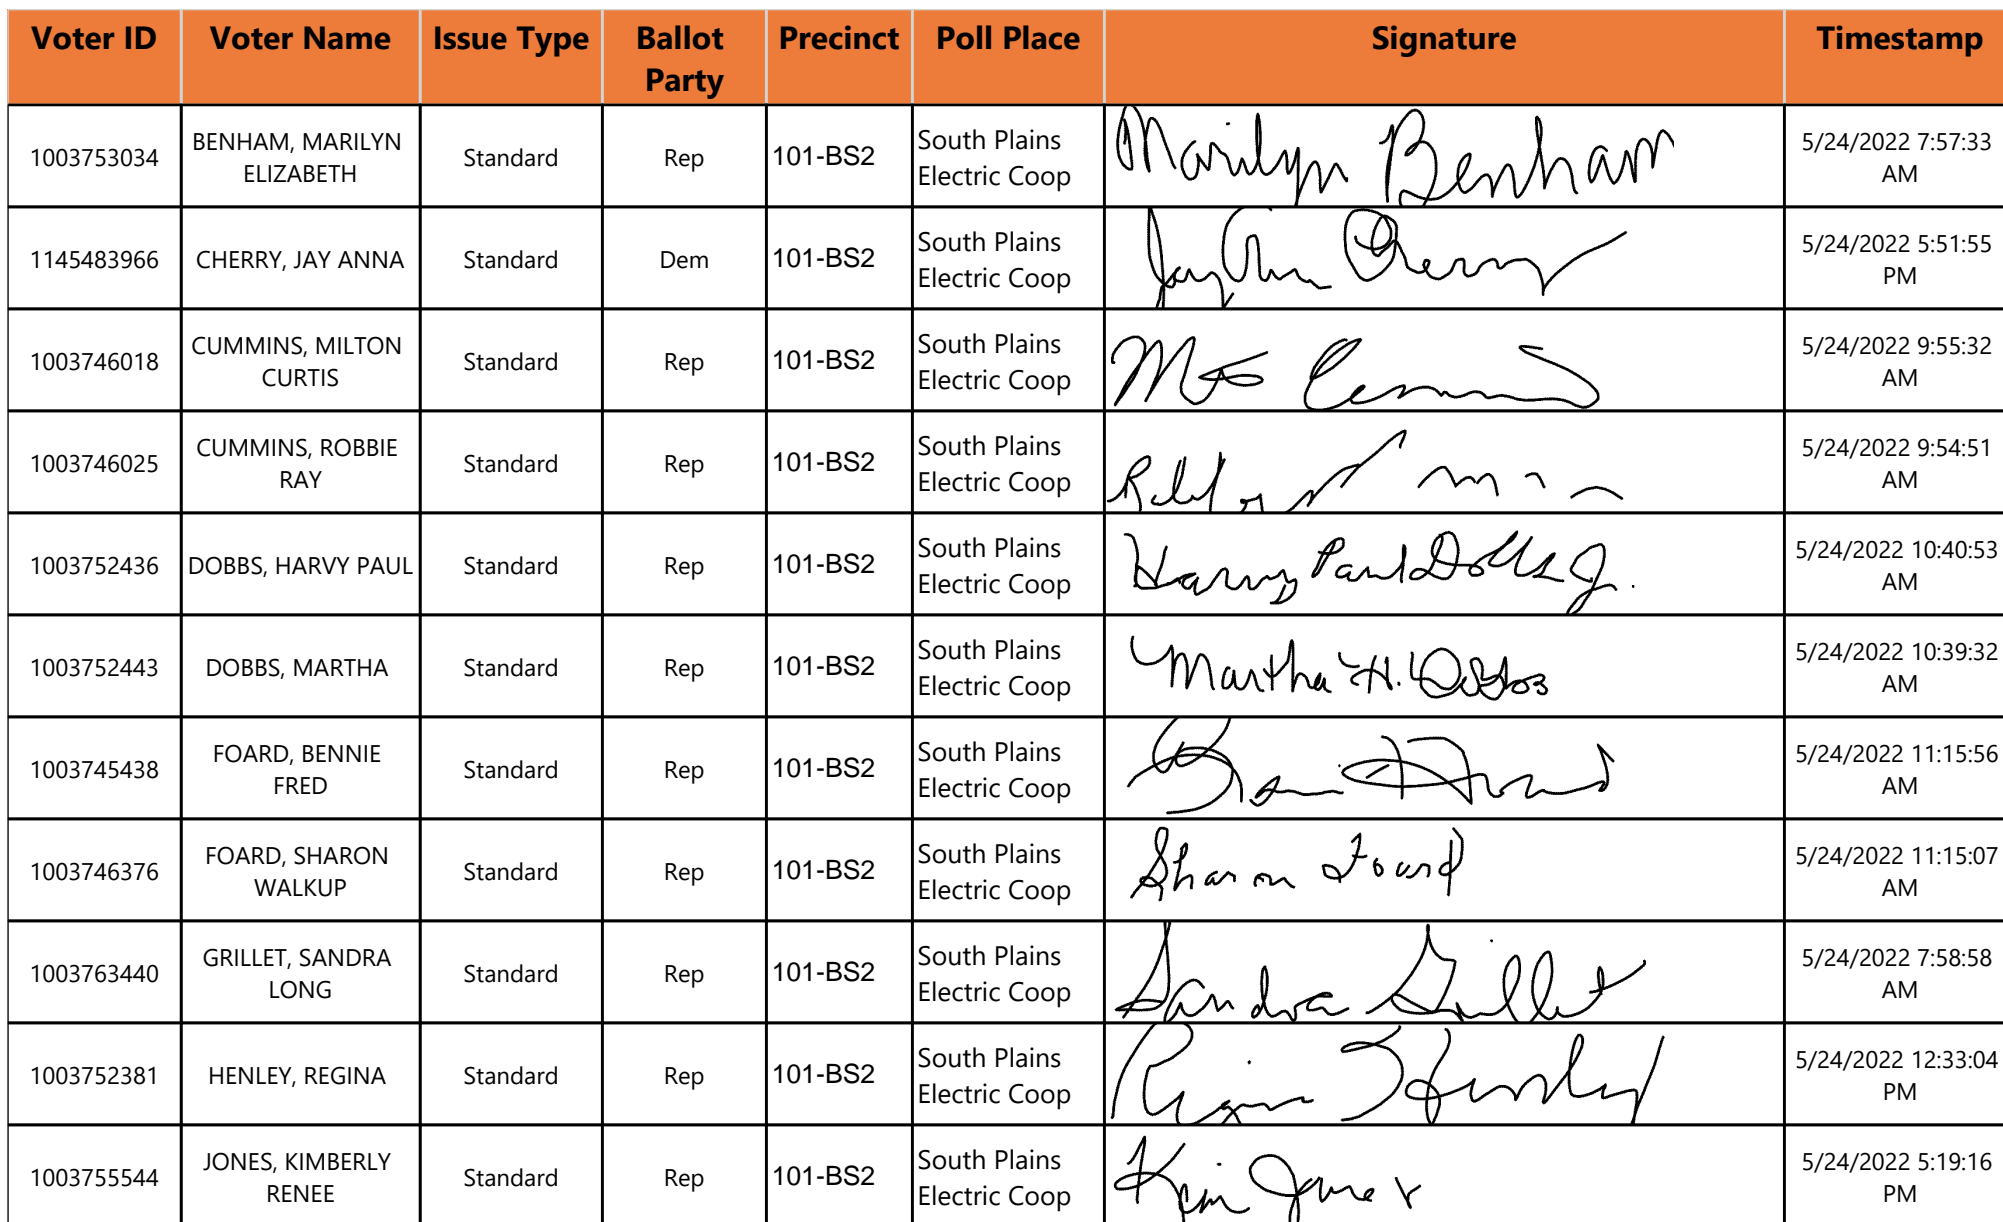 Voter ID Voter Name Issue Type Ballot Party Precinct Poll Place Signature Timestamp
1003753034 BENHAM, MARILYN ELIZABETH Standard Rep 101-BS2 South Plains Electric Coop Marilyn Benham 5/24/2022 7:57:33 AM
1145483966 CHERRY, JAY ANNA Standard Dem 101-BS2 South Plains Electric Coop Jay Ann Cherry 5/24/2022 5:51:55 PM
1003746018 CUMMINS, MILTON CURTIS Standard Rep 101-BS2 South Plains Electric Coop 5/24/2022 9:55:32 AM
1003746025 CUMMINS, ROBBIE RAY Standard Rep 101-BS2 South Plains Electric Coop 5/24/2022 9:54:51 AM
1003752436 DOBBS, HARVY PAUL Standard Rep 101-BS2 South Plains Electric Coop Harvy Paul Dobbs Jr. 5/24/2022 10:40:53 AM
1003752443 DOBBS, MARTHA Standard Rep 101-BS2 South Plains Electric Coop Martha H. Dobbs 5/24/2022 10:39:32 AM
1003745438 FOARD, BENNIE FRED Standard Rep 101-BS2 South Plains Electric Coop 5/24/2022 11:15:56 AM
1003746376 FOARD, SHARON WALKUP Standard Rep 101-BS2 South Plains Electric Coop Sharon Foard 5/24/2022 11:15:07 AM
1003763440 GRILLET, SANDRA LONG Standard Rep 101-BS2 South Plains Electric Coop Sandra Grillet 5/24/2022 7:58:58 AM
1003752381 HENLEY, REGINA Standard Rep 101-BS2 South Plains Electric Coop Regina Henley 5/24/2022 12:33:04 PM
1003755544 JONES, KIMBERLY RENEE Standard Rep 101-BS2 South Plains Electric Coop Kim Jones 5/24/2022 5:19:16 PM